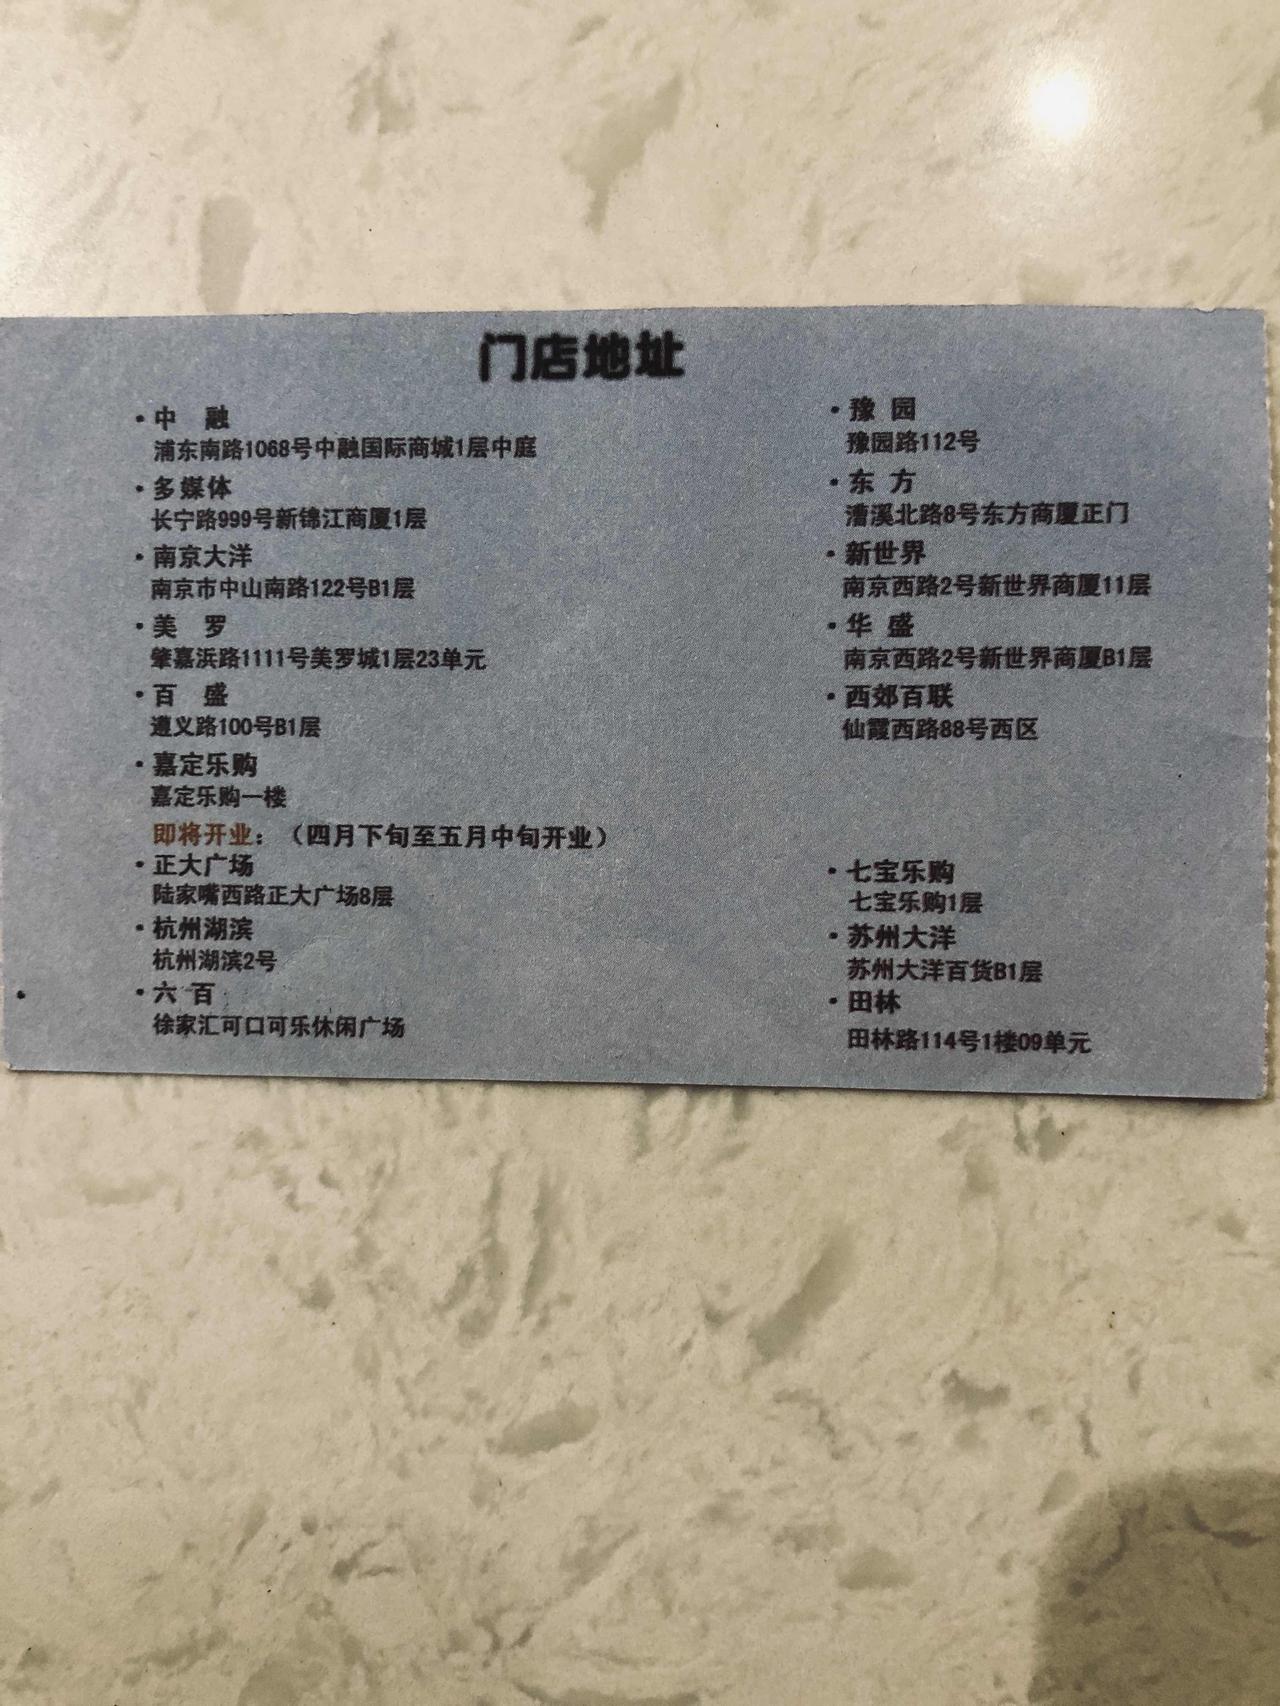 门店地址
·中 融
浦东南路1068号中融国际商城1层中庭
·多媒体
长宁路999号新锦江商厦1层
·南京大洋
南京市中山南路122号B1层
·美 罗
肇嘉浜路1111号美罗城1层23单元
·百 盛
遵义路100号B1层
·嘉定乐购
嘉定乐购一楼
·豫 园
豫园路112号
·东 方
漕溪北路8号东方商厦正门
·新世界
南京西路2号新世界商厦11层
·华 盛
南京西路2号新世界商厦B1层
·西郊百联
仙霞西路88号西区
即将开业：（四月下旬至五月中旬开业）
·正大广场
陆家嘴西路正大广场8层
·杭州湖滨
杭州湖滨2号
·六 百
徐家汇可口可乐休闲广场
·七宝乐购
七宝乐购1层
·苏州大洋
苏州大洋百货B1层
·田林
田林路114号1楼09单元